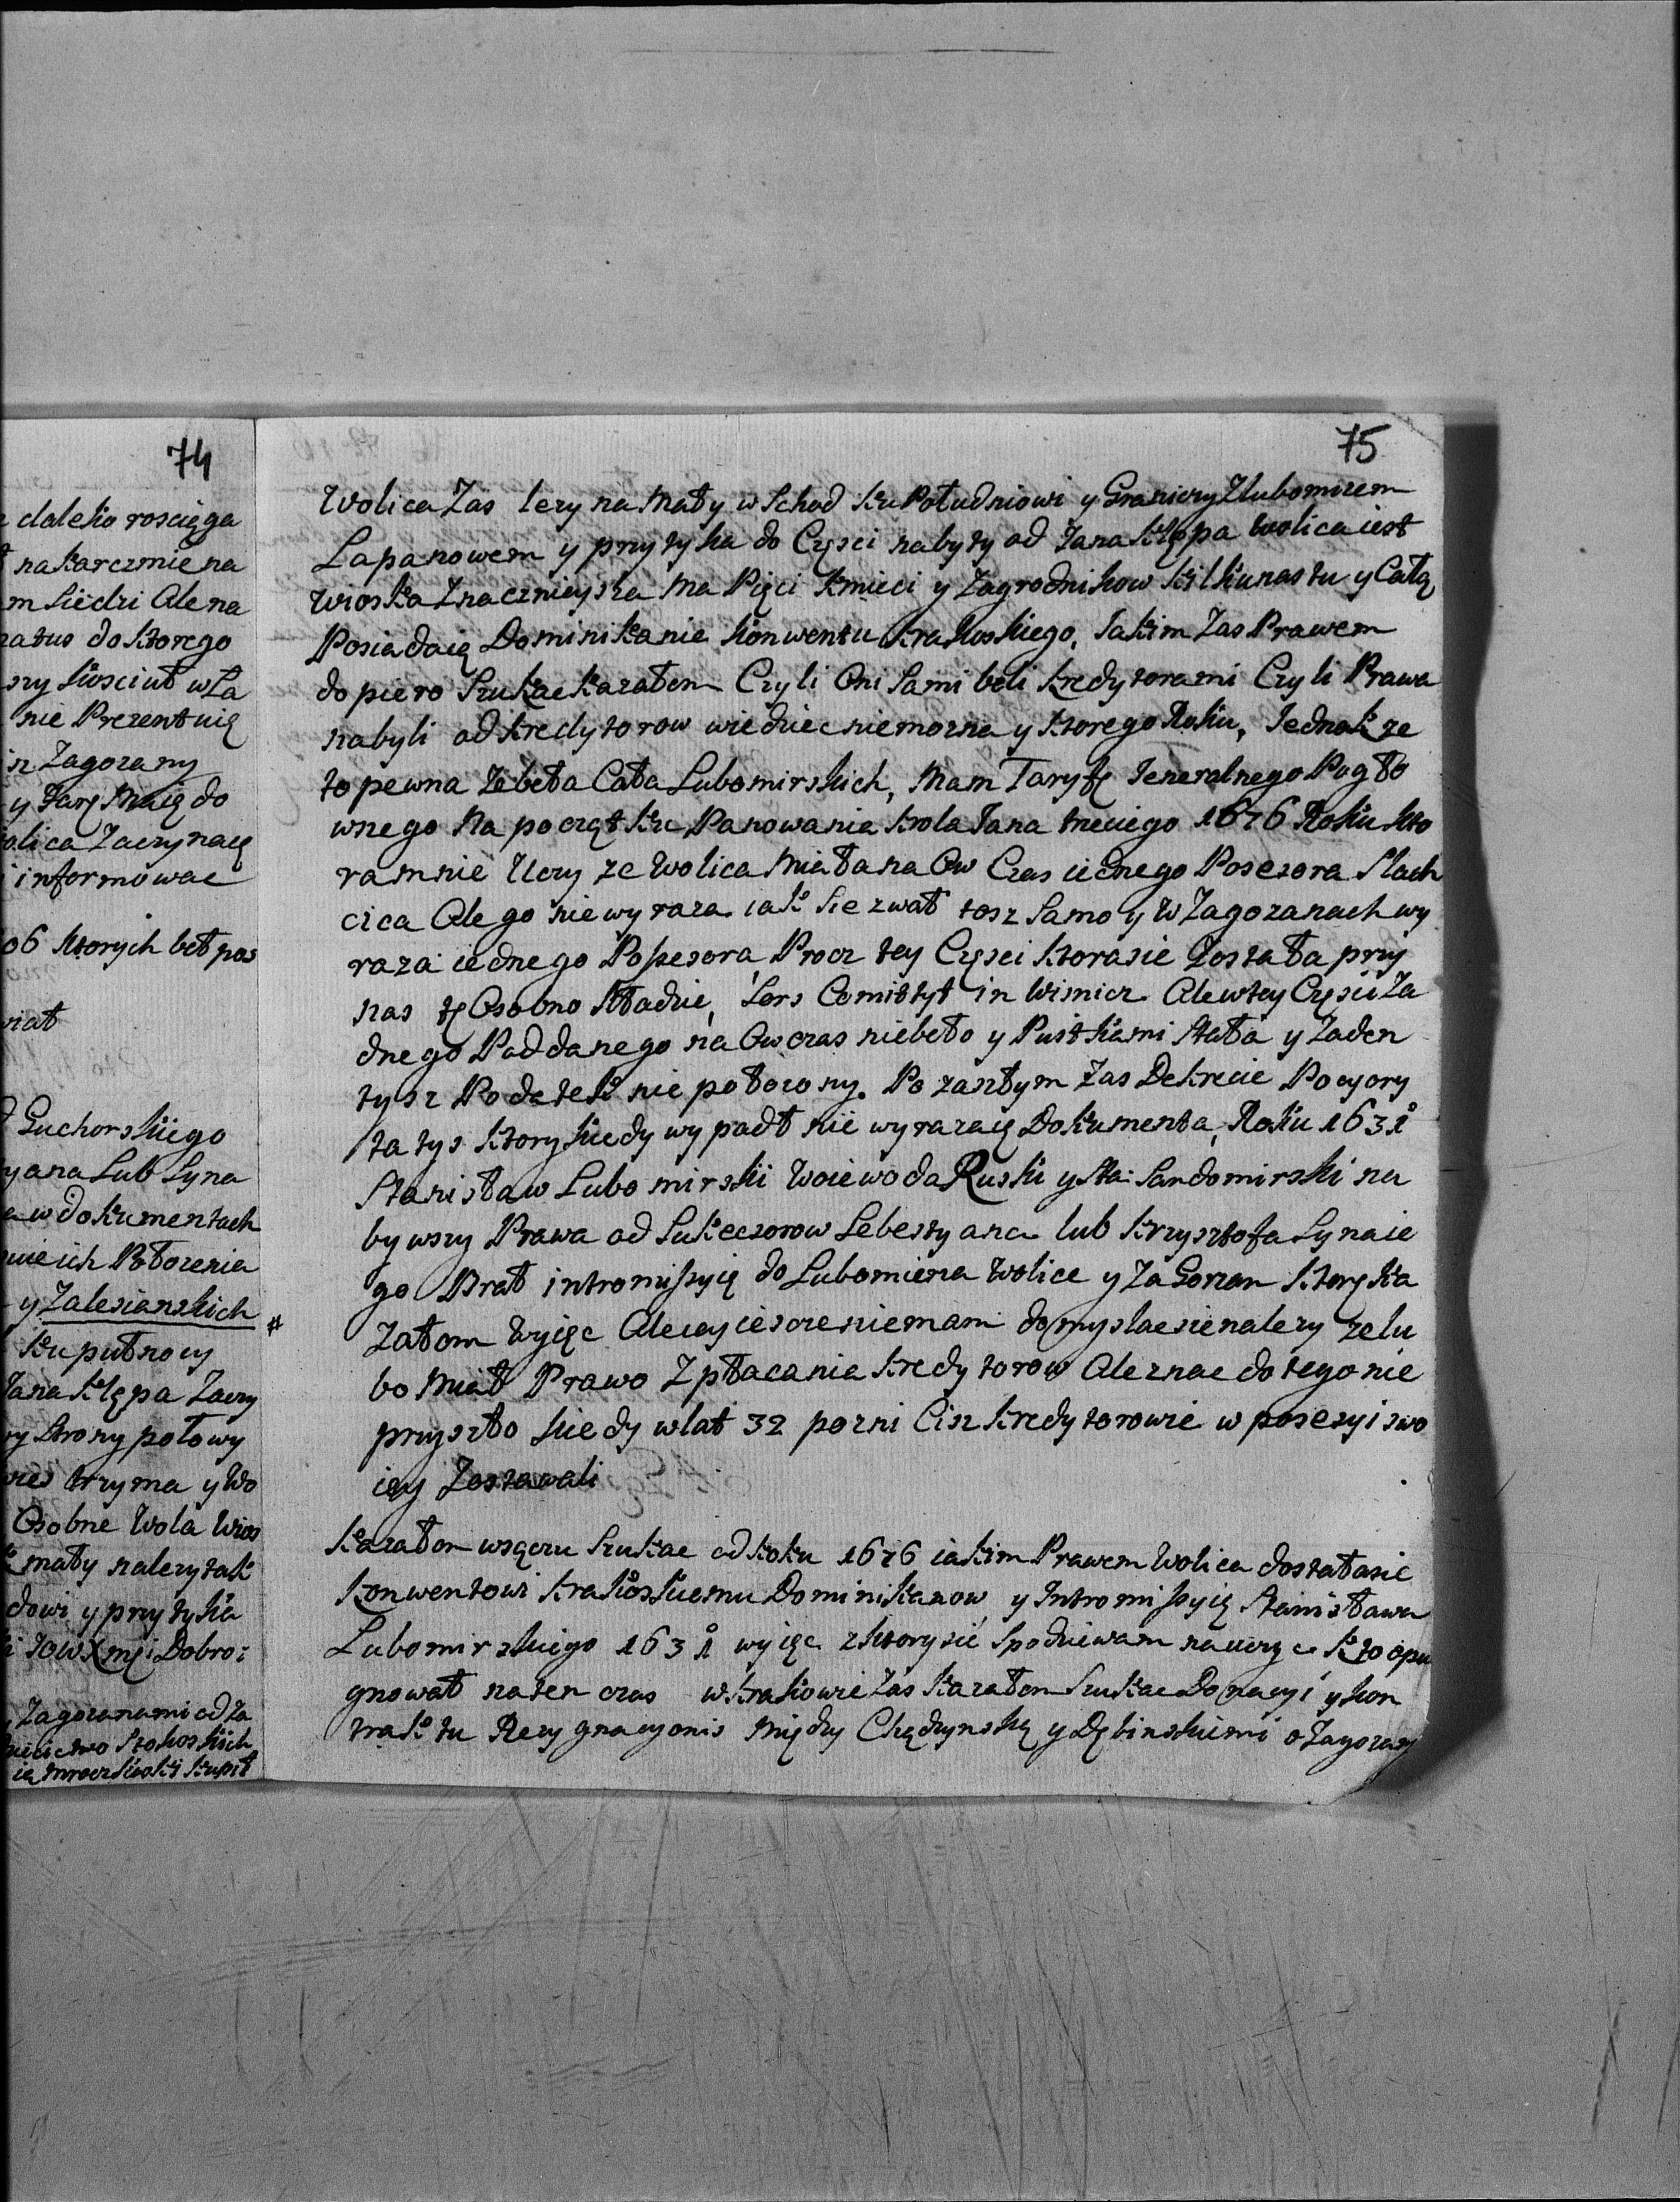 74
daleko rosciąga
na karczmie na
m siedzi Ale na
ratus do ktorego
szy kosciuł w Ła
nie Prezentuią
iż Zagorzany
y Parę Maią do
olica Zaczynaią
informowac
06 ktorych beł pos
Suchorskiego
yana Lub Syna
w dokumentach
nie ich Połozenia
y Zalesianskich
ku pułnocy
Jana Klępa Zaczy
Strony połowy
trzyma y Wo
Osobne Wola Wios
mały nalezy tak
dowi y przytyka
Dobro:
Zagorzanami od Za
Stokoskich
kupił
75
Wolica Zas lezy na Mały wschod ku Południowi y Graniczy Zlubomirem
Lapanowem y przytyka do Częsci nabyty od Jana Klępa Wolica iest
Wioska Znacznieysza Ma Pięci Kmieci y Zagrodnikow kilkunastu y Całą
Posiadaią Dominikanie Konwentu Krakoskiego, Jakim Zas Prawem
dopiero Szukac kazałem Czyli Oni Sami beli kredytorami Czyli Prawa
nabyli od kredytorow wiedziec niemozna y ktorego Roku, Jednakze
to pewna Ze beła Cała Lubomirskich, Mam Taryfę Jeneralnego Pogło
wnego Na początku Panowania krola Jana trzeciego 1676 Roku kto
ra mnie Uczy ze Wolica Miała na Ow Czas iednego Posesora Slach
cica Ale go niewyraza iak sie zwał tosz Samo y w Zagorzanach wy
raza iednego Possesora, Procz tey Częsci ktora sie Została przy
nas tę Osobno kładzie, Sors Comittyt in Wisnicz Ale w tey Częsci Za
dnego Poddanego na Ow czas niebeło y Pustkami stała y Zaden
tysz Podatek nie połozony. Po zaszłym Zas Dekrecie Pocyory
tatys ktory kiedy wypadł nie wyrazaią Dokumenta, Roku 1631
Stanisław Lubomirski Woiewoda Ruski y Sta: Sandomirski na
bywszy Prawa od Sukcesorow Sebestyana lub Krzysztofa Syna ie
go Brał intromissyią do Lubomierza Wolice y Zagorzan ktorę ka
załom Wyiąc Ale iey ieszcze niemam domyslac sie nalezy ze lu
bo Miał Prawo Zpłacania kredytorow Ale znac do tego nie
przyszło kiedy w lat 32 pozni Cisz kredytorowie w posesyi swo
iey Zostawali
# Kazałom wsączu Szukac od Roku 1676 iakim Prawem Wolica dostała sie
Konwentowi Krakoskiemu Dominikanow y Intromissyią Stanisława
Lubomirskiego 1631 wyiąc z ktory sie Spodziewam nauczyc kto opu
gnował na ten czas w Krakowie Zas kazałem Szukac Donacyi y kon
traktu Rezygnacyonis Między Chądzynską y Dębinskiemi o Zagorzany